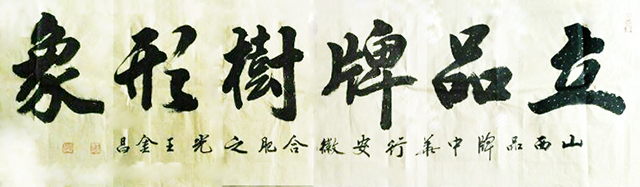 立品牌樹形象
山西品牌中華行安徽合肥之光王金昌